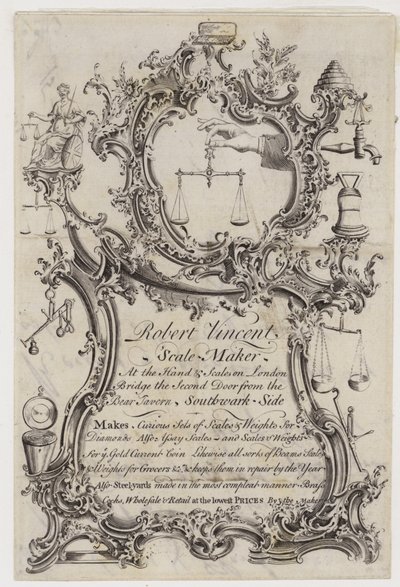 Robert Vincent
Scale Maker
At the Hand & Scales on London
Bridge the Second Door from the
Bear Tavern, Southwark Side
Makes Curious Sets of Scales & Weights for
Diamonds Also Assay Scales and Scales & Weights
for ye Gold Current Coin Likewise all sorts of Beams Scales
& Weights for Grocers &c. & keeps them in repair by the Year
Also Steelyards made in the most compleat manner Brass
Cocks, Wholesale & Retail at the lowest PRICES By the Maker